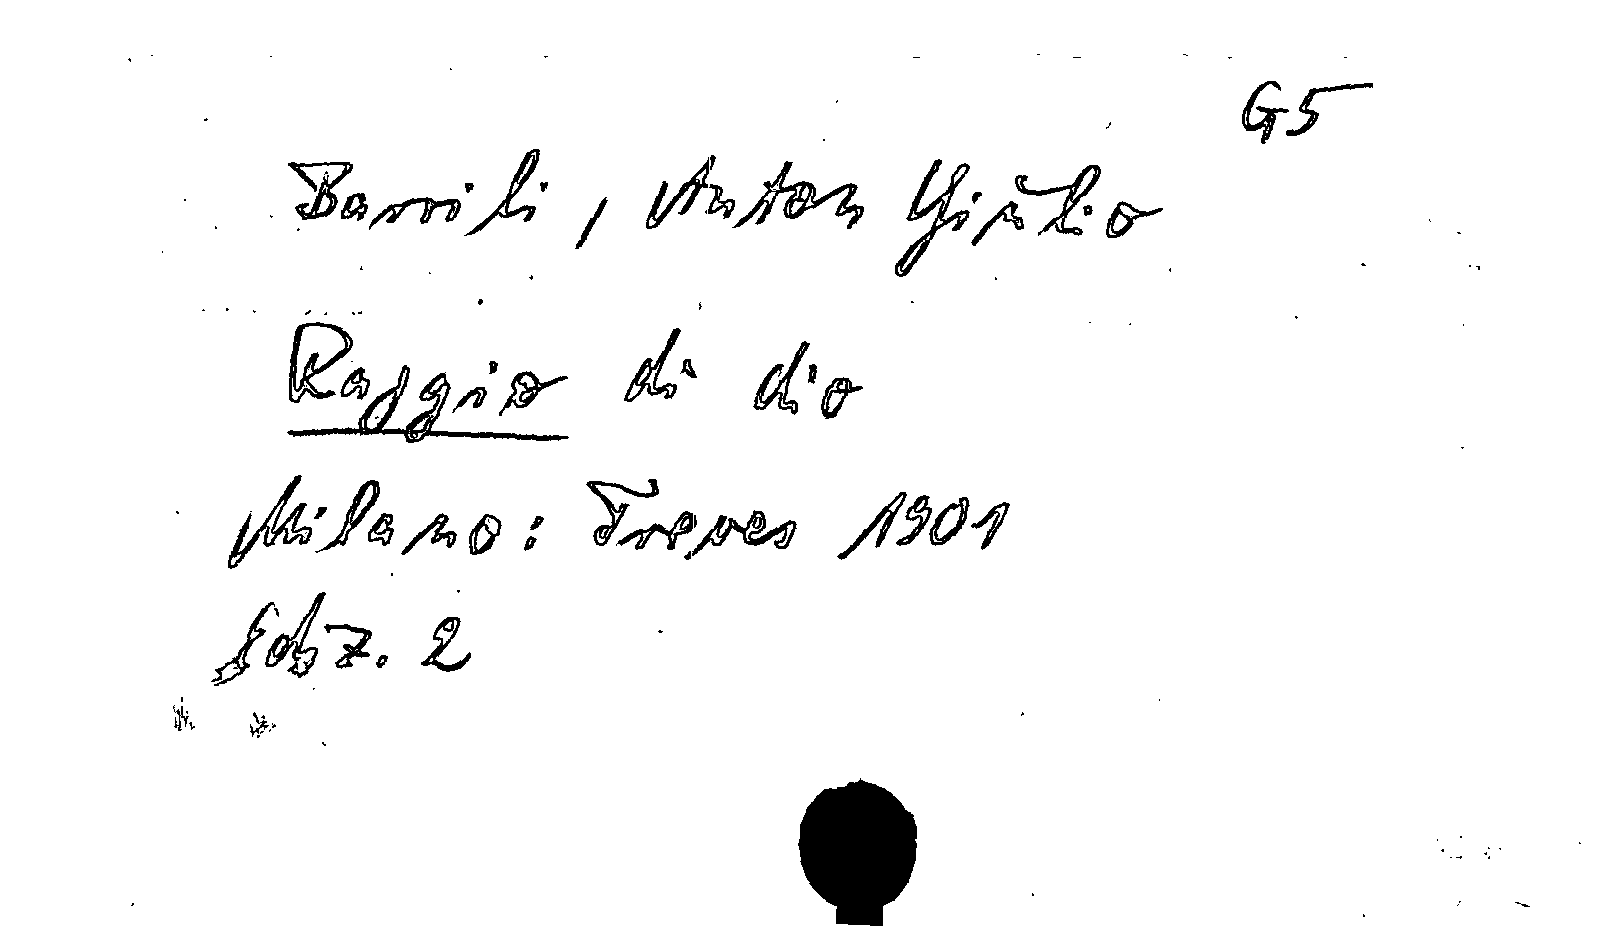 G5
Barrili, Anton Giulio
Raggio di dio
Milano: Treves 1901